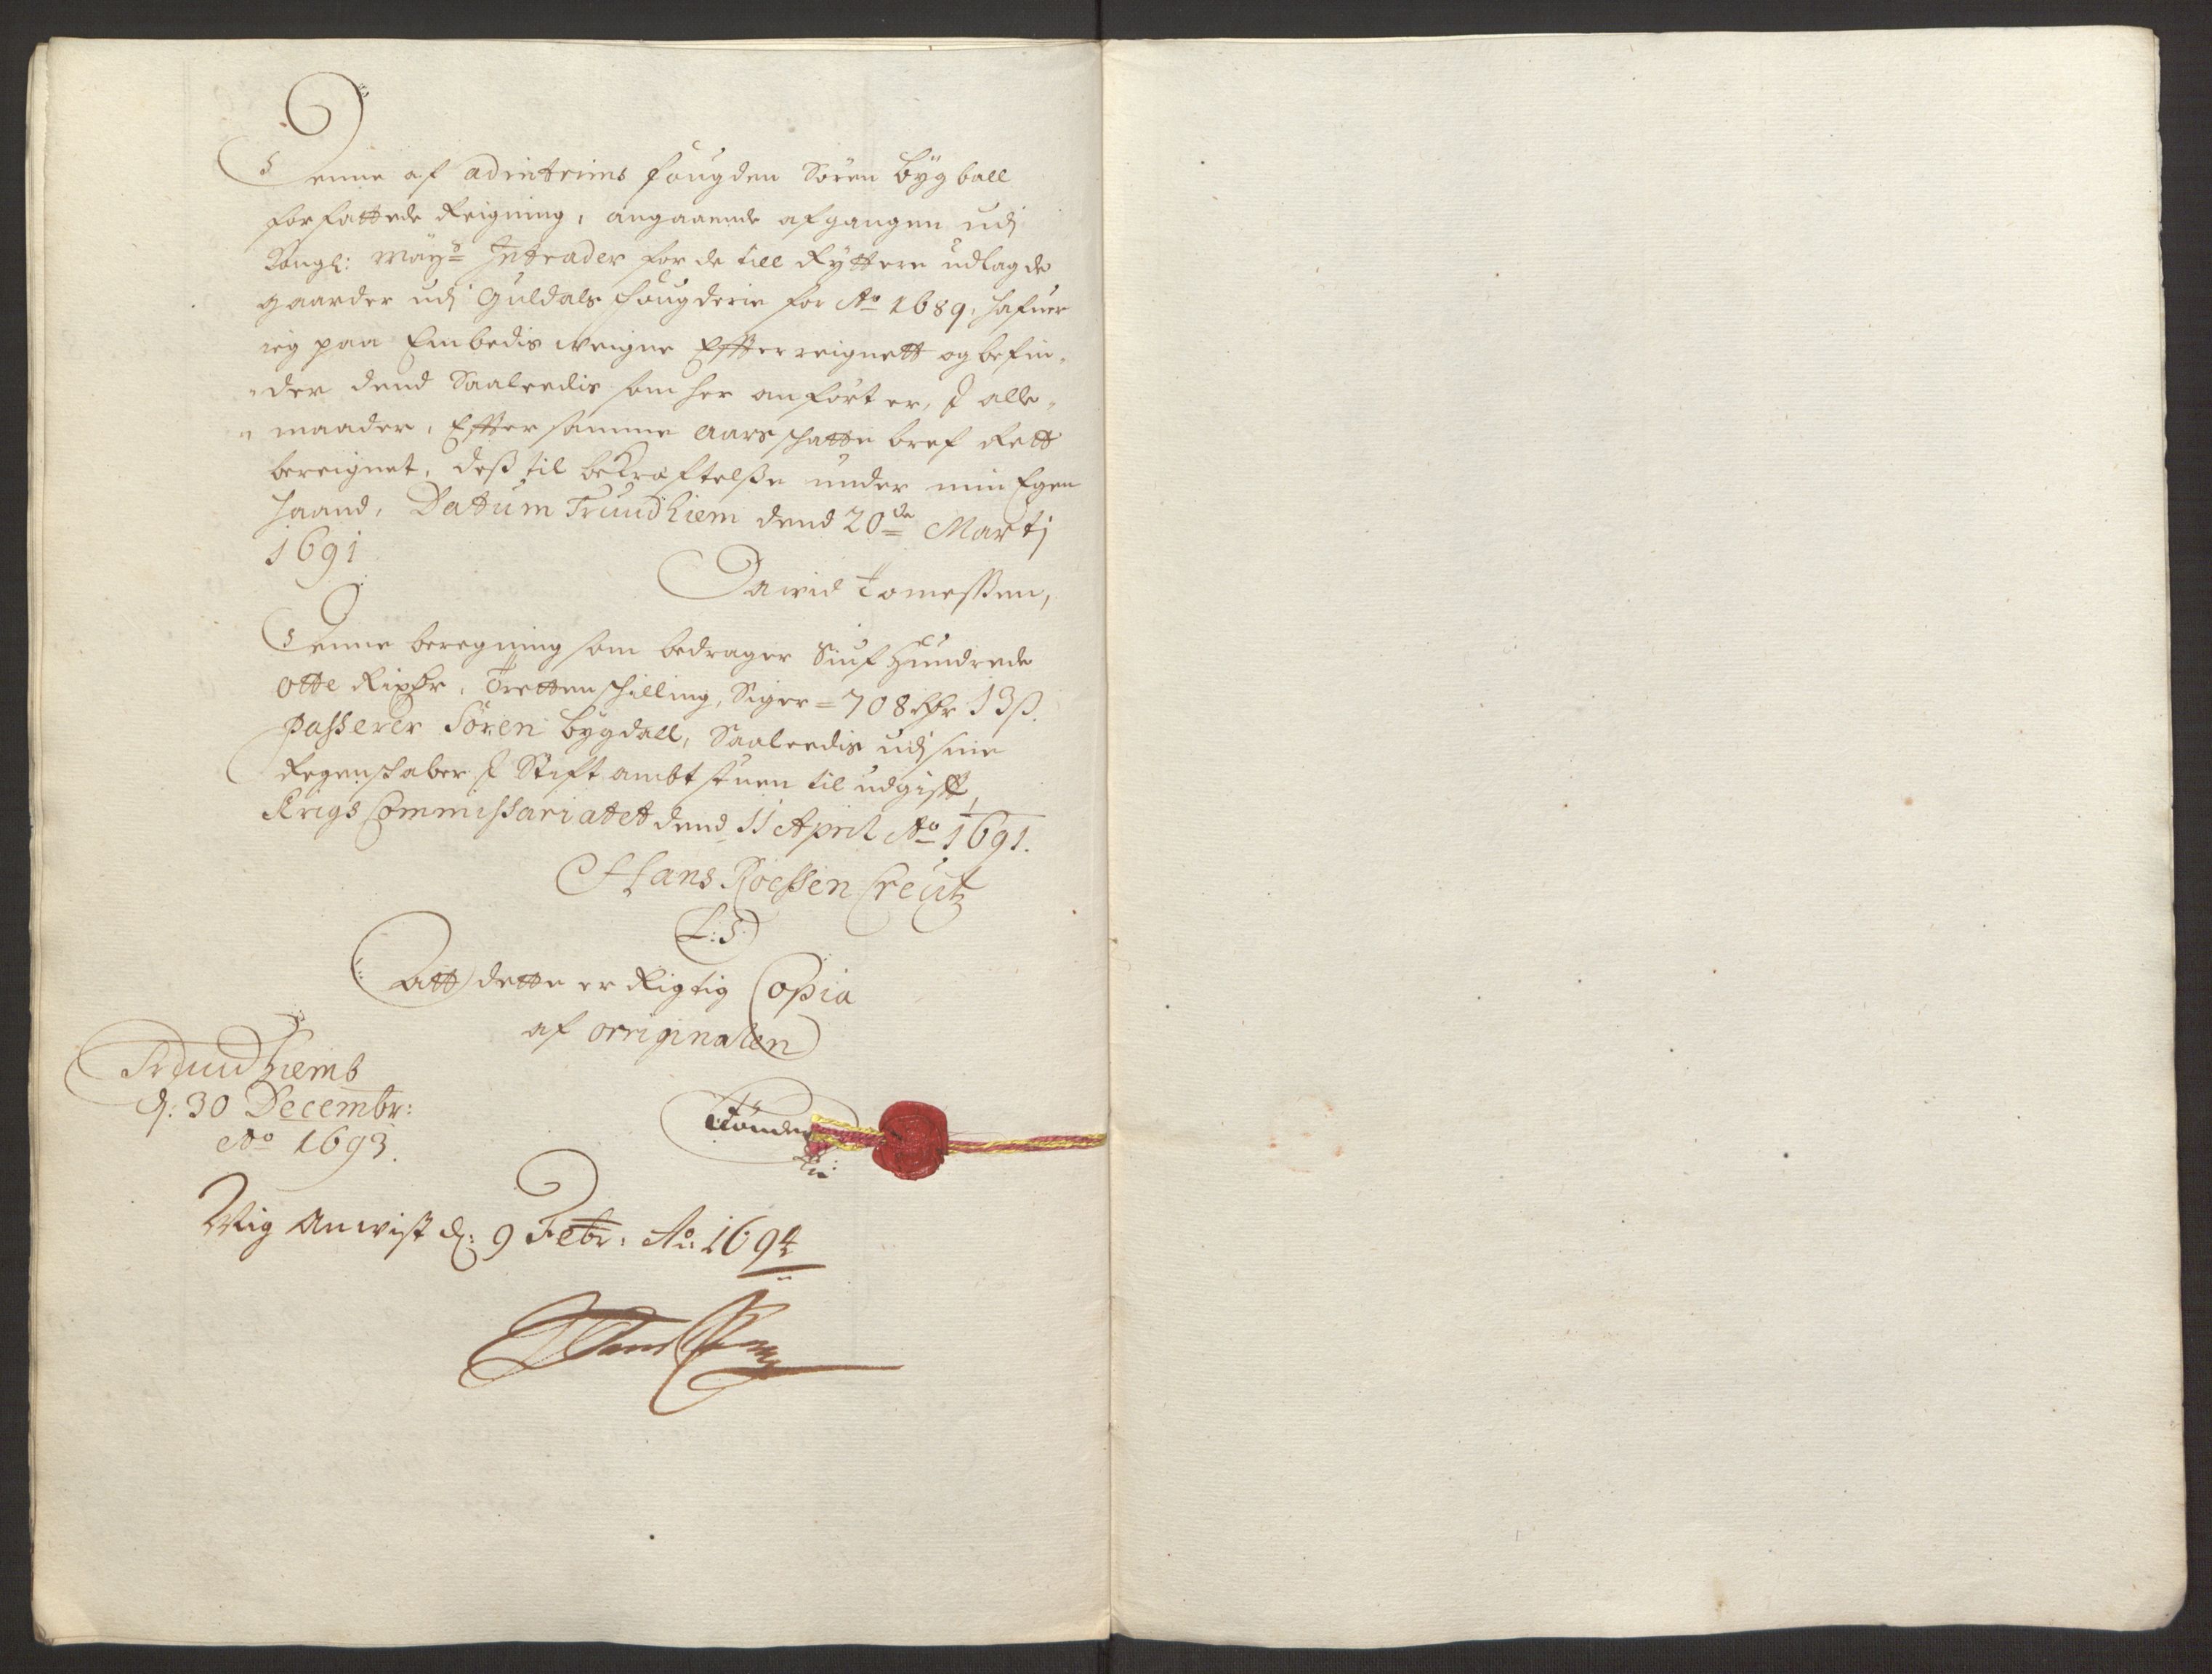 Denne af adintrims fougden Sören Bÿgball
forfattede Reigning, angaaende afgangen udj
Kongl: Maÿs Intrader for de till Rÿttere udlagde
gaarder udj Guldals fougderie for Ao 1689, hafuer
ieg paa Embedis weigne Effterreignett og befin-
der dend Saaleedis som her anfört er, J alle
maader, Effter samme aars schatte bref Rett
bereignet, dess til bekræftelsse under min Egen
haand, Datum Trundhiem dend 20de Martj
1691
Dawid Tomessen,
Denne beregning som bedrager Siuf Hundrede
otte Rixdr, Tretten schilling, Siger = 708 Rdr 13 ß.
Passerer Sören Bÿgdall, Saaleedis udj sine
Regenschaber J Stift ambtstuen til udgifft,
Krigs Commissariatet dend 11 April Ao 1691.
Hans Roessen Creutz
L:S
Att dette er Rigtig Copia
af orriginalen
Trundhiemb
d: 30 Decembr:
Ao 1693.
Tönder
Mig Anwist d: 9 Febr: Ao: 1694